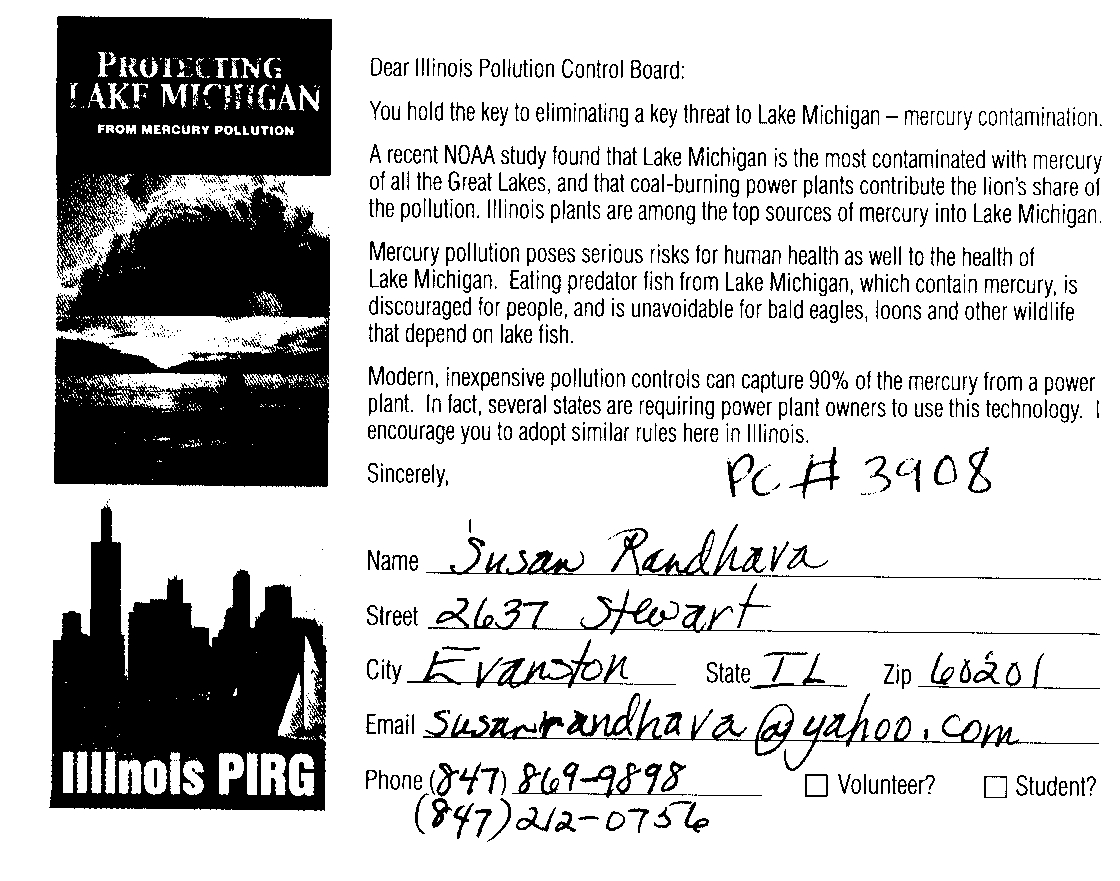 PROTECTING
LAKE MICHIGAN
FROM MERCURY POLLUTION
Dear Illinois Pollution Control Board:
You hold the key to eliminating a key threat to Lake Michigan – mercury contamination.
A recent NOAA study found that Lake Michigan is the most contaminated with mercury
of all the Great Lakes, and that coal-burning power plants contribute the lion's share of
the pollution. Illinois plants are among the top sources of mercury into Lake Michigan.
Mercury pollution poses serious risks for human health as well to the health of
Lake Michigan. Eating predator fish from Lake Michigan, which contain mercury, is
discouraged for people, and is unavoidable for bald eagles, loons and other wildlife
that depend on lake fish.
Modern, inexpensive pollution controls can capture 90% of the mercury from a power
plant. In fact, several states are requiring power plant owners to use this technology. I
encourage you to adopt similar rules here in Illinois.
Sincerely,
PC # 3908
Name Susan Randhava
Street 2637 Stewart
City Evanston State IL Zip 60201
Email susanrandhava@yahoo.com
Phone (847) 869-9898 Volunteer? Student?
(847) 212-0756
Illinois PIRG